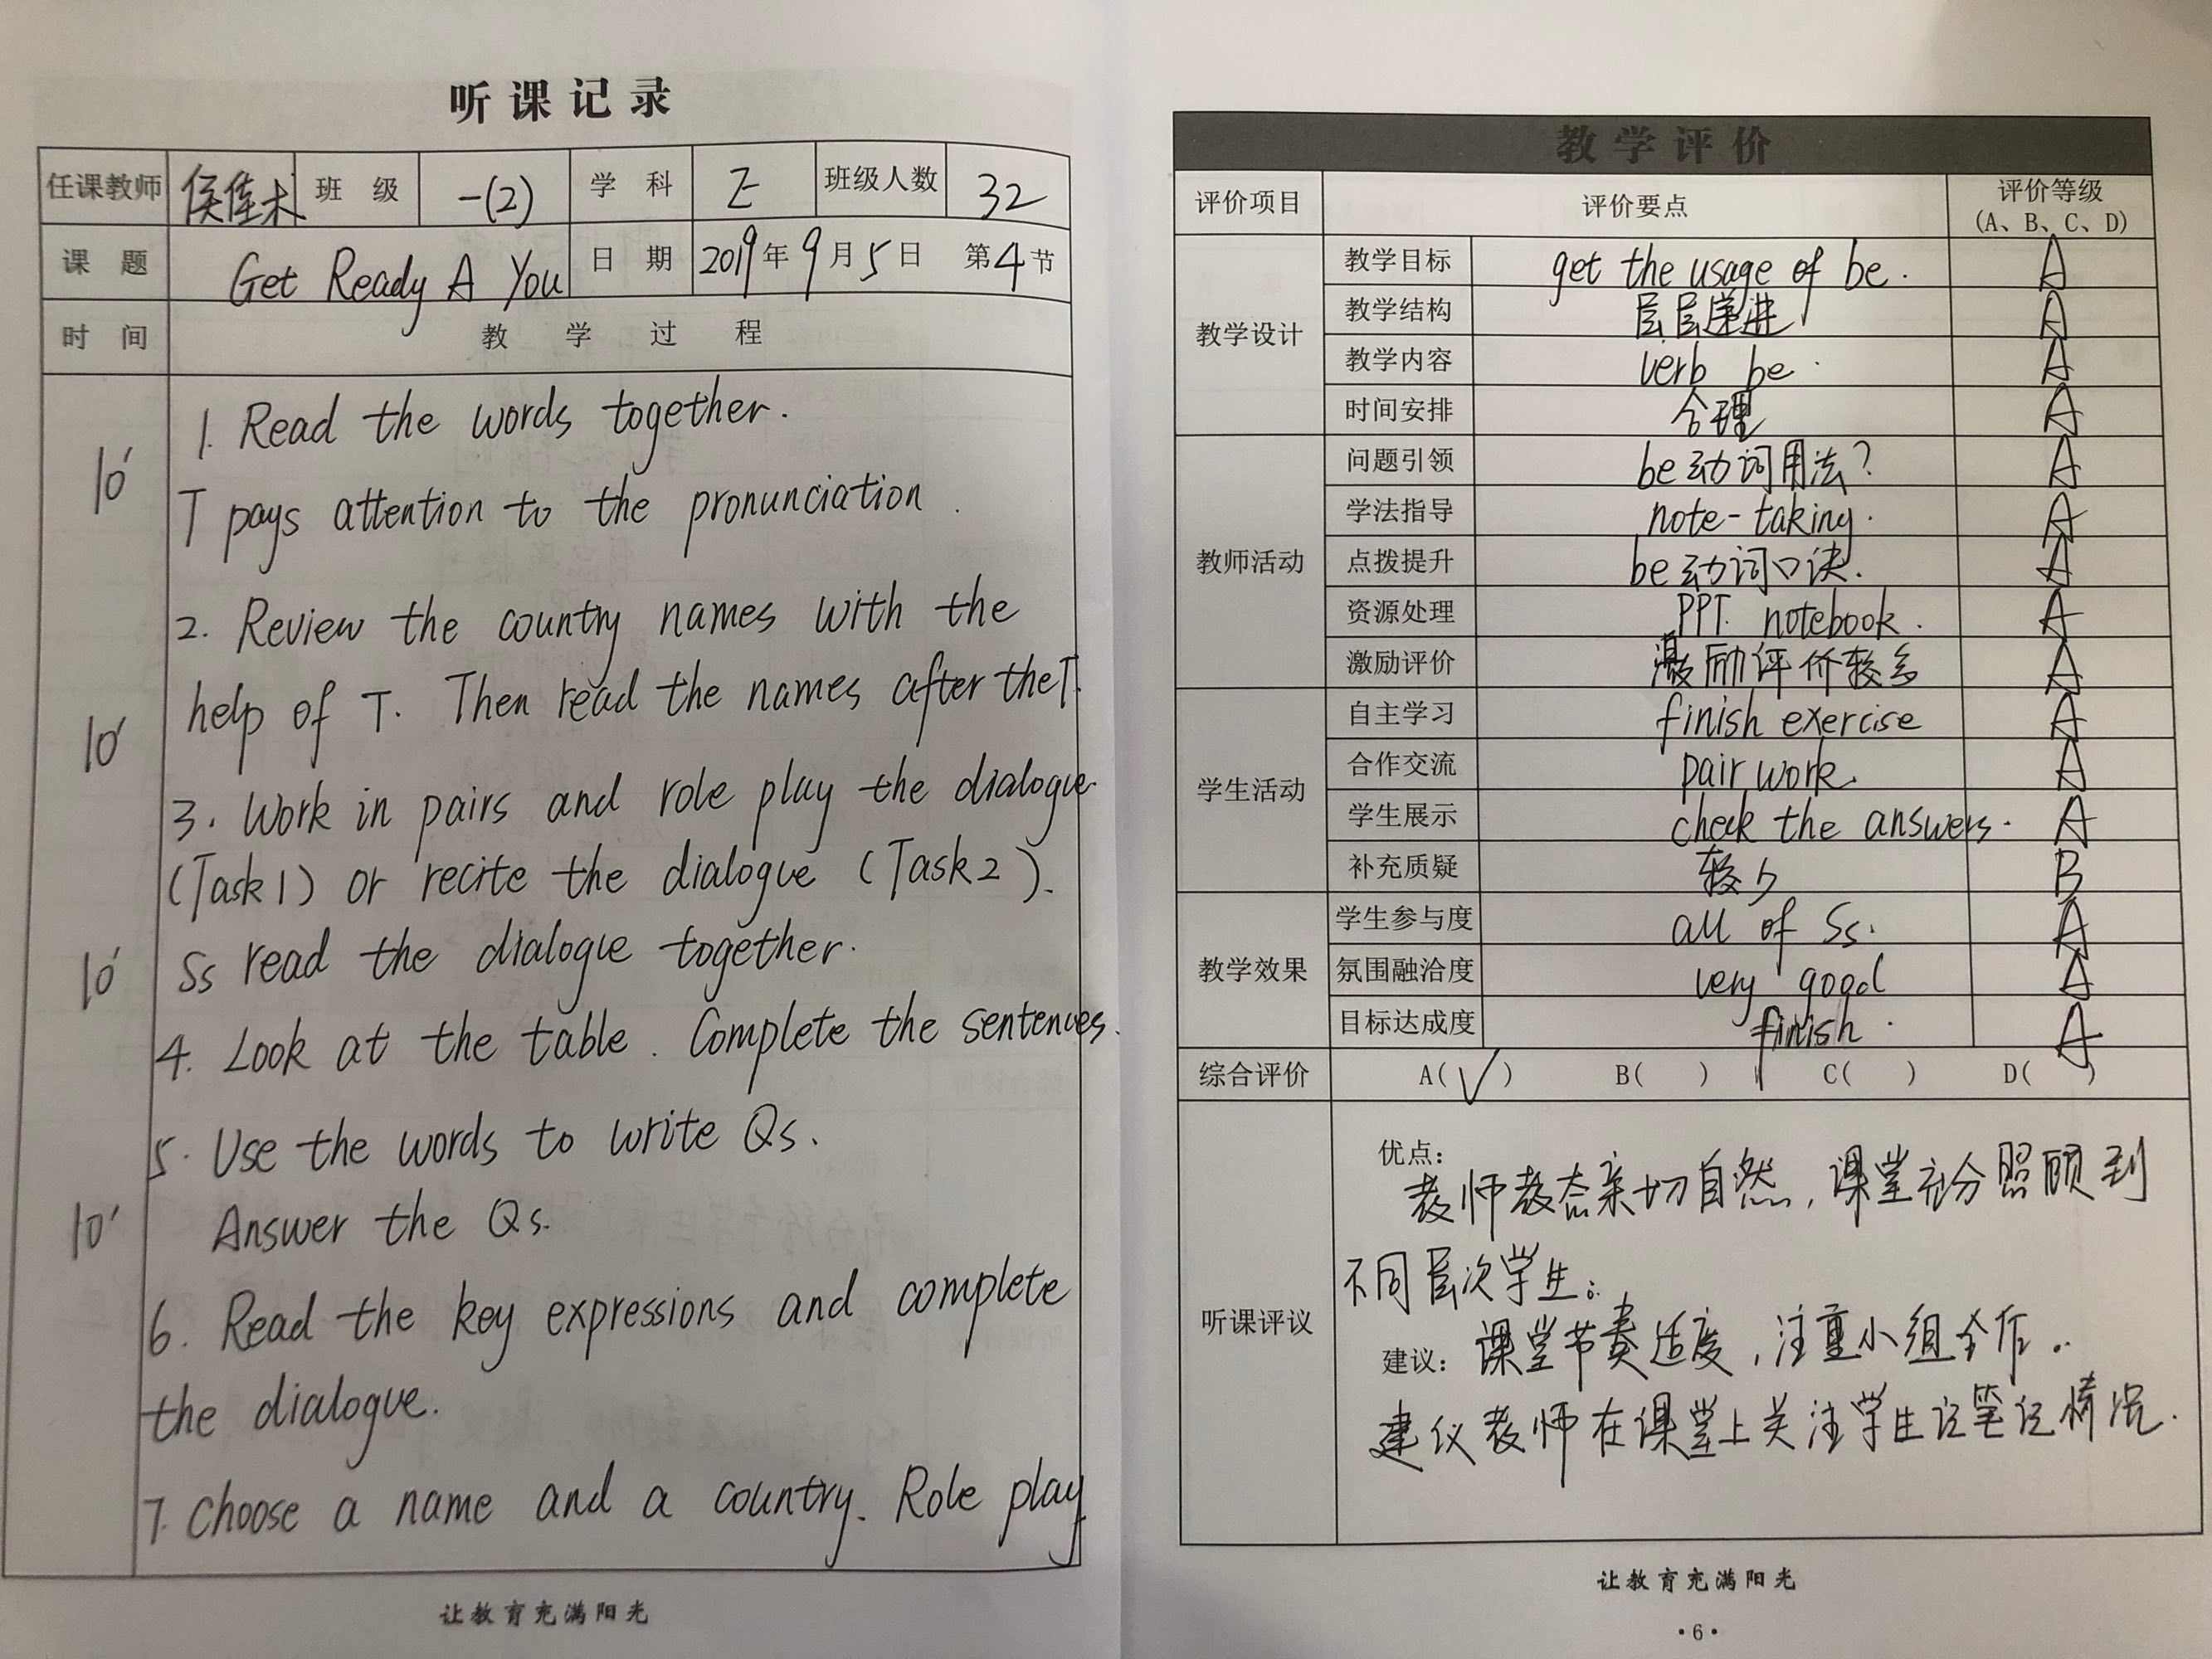 听课记录
任课教师 侯佳木 班级 一(2) 学科 E 班级人数 32
课题 Get Ready A You 日期 2019年9月5日 第4节
时间 教学过程
10' 1. Read the words together.
T pays attention to the pronunciation.
2. Review the country names with the
help of T. Then read the names after the T.
10'
3. Work in pairs and role play the dialogue
(Task 1) or recite the dialogue (Task 2).
10' Ss read the dialogue together.
4. Look at the table. Complete the sentences.
5. Use the words to write Qs.
10' Answer the Qs.
6. Read the key expressions and complete
the dialogue.
7. Choose a name and a country. Role play
让教育充满阳光
教学评价
评价项目 评价要点 评价等级
(A、B、C、D)
教学设计
教学目标 get the usage of be. A
教学结构 层层递进 A
教学内容 verb be. A
时间安排 合理 A
教师活动
问题引领 be动词用法? A
学法指导 note-taking. A
点拨提升 be动词口诀. A
资源处理 PPT. notebook. A
激励评价 激励评价较多 A
学生活动
自主学习 finish exercise A
合作交流 pair work. A
学生展示 check the answers. A
补充质疑 较少 B
教学效果
学生参与度 all of Ss. A
氛围融洽度 very good A
目标达成度 finish. A
综合评价 A(√) B( ) C( ) D( )
听课评议
优点:
教师教态亲切自然,课堂充分照顾到
不同层次学生.
建议: 课堂节奏适度,注重小组合作.
建议教师在课堂上关注学生记笔记情况.
让教育充满阳光
·6·